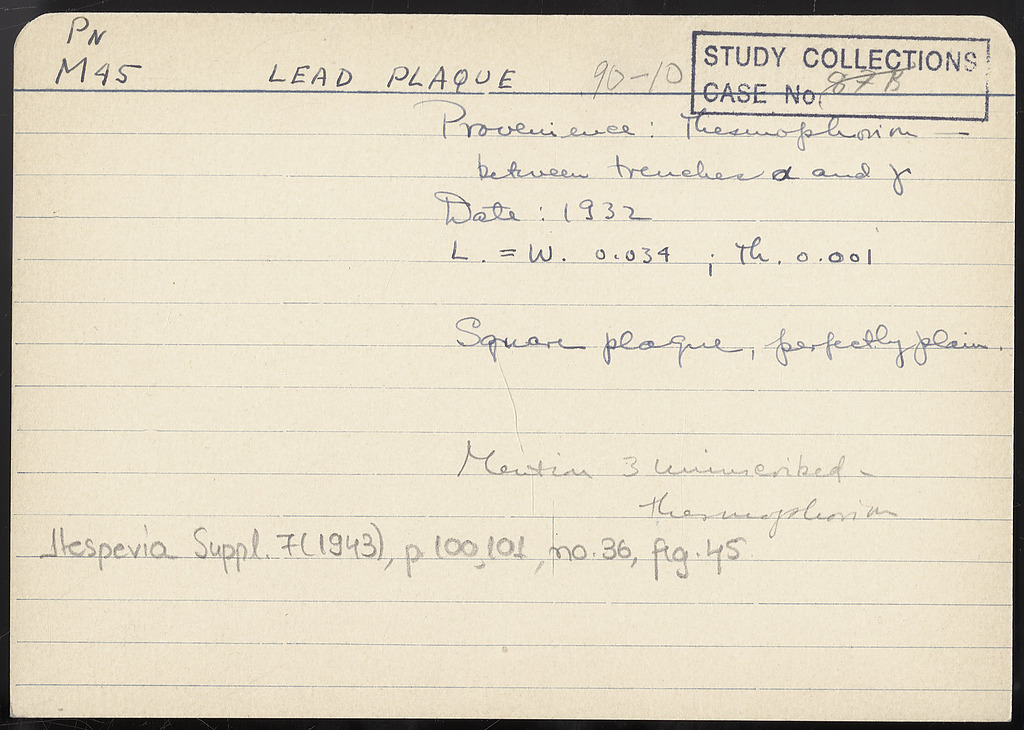 PN
M45 LEAD PLAQUE 90-10
STUDY COLLECTIONS
CASE No. 87B
Provenience: Thesmophorion —
between trenches α and γ
Date: 1932
L. = W. 0.034 ; Th. 0.001
Square plaque, perfectly plain.
Mention 3 uninscribed -
thesmophorion
Hesperia Suppl. 7(1943), p. 100,101, no. 36, fig. 45